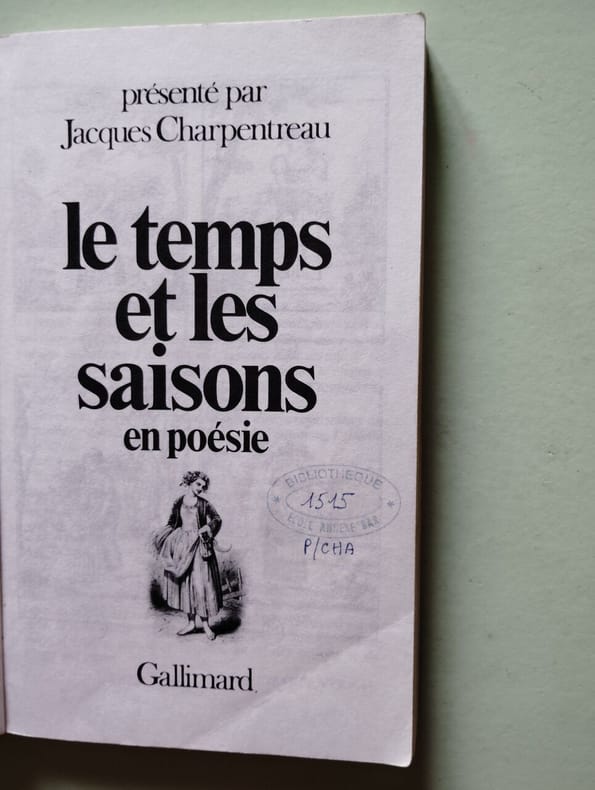 présenté par
Jacques Charpentreau
le temps
et les
saisons
en poésie
BIBLIOTHEQUE
1515
P/CHA
Gallimard